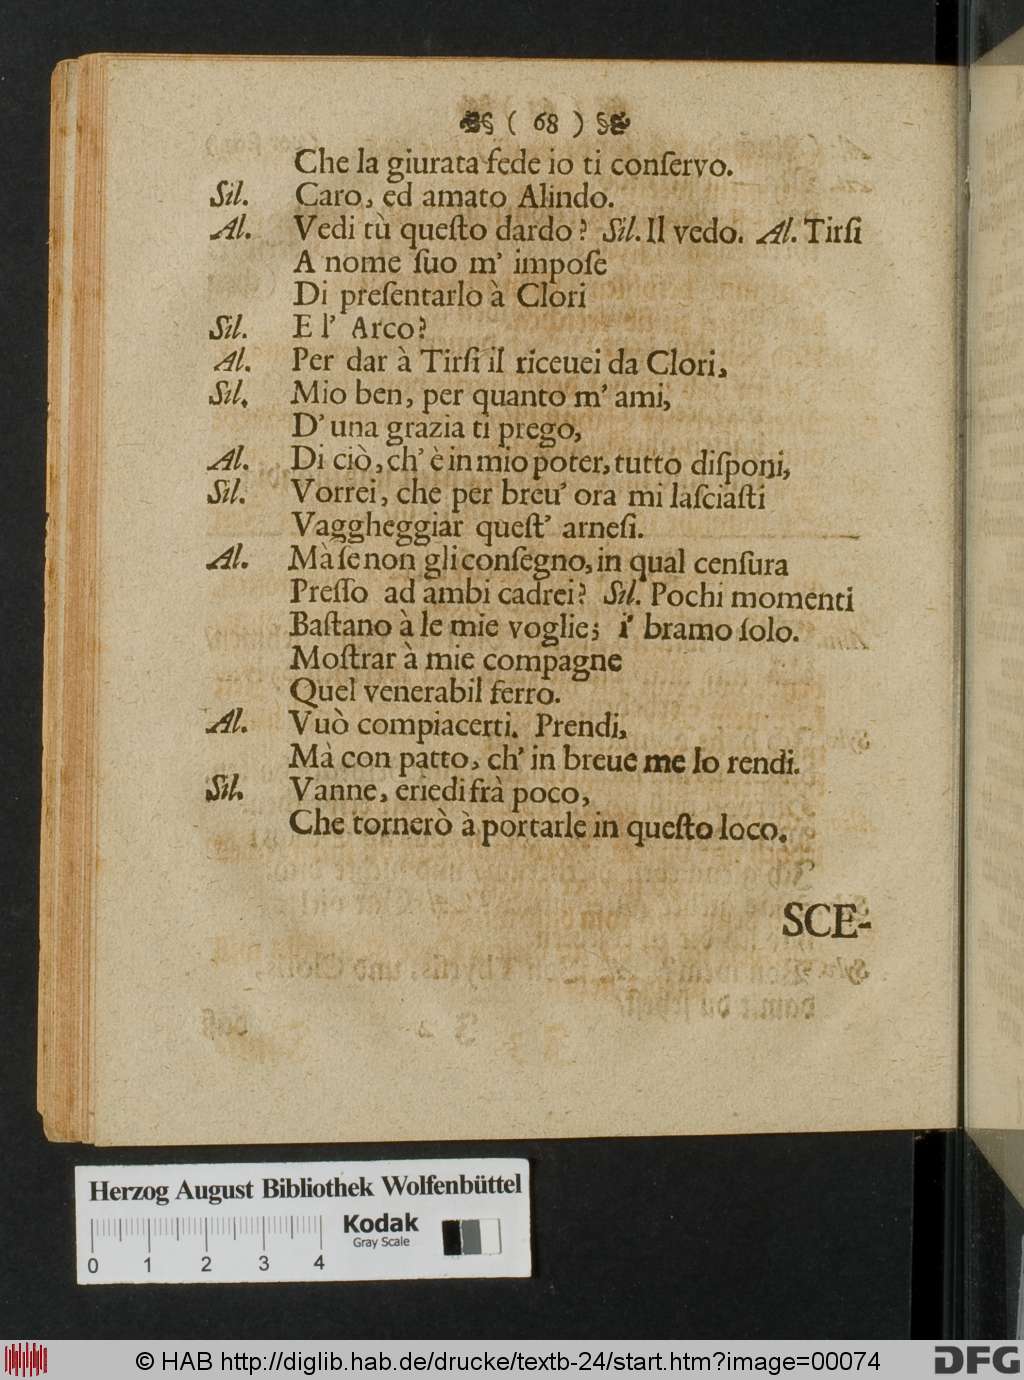 ( 68 )
Che la giurata fede io ti conſervo.
Sil. Caro, ed amato Alindo.
Al. Vedi tù queſto dardo? Sil. Il vedo. Al. Tirſi
A nome ſuo m' impoſe
Di preſentarlo à Clori
Sil. E l' Arco?
Al. Per dar à Tirſi il riceuei da Clori,
Sil. Mio ben, per quanto m' ami,
D' una grazia ti prego,
Al. Di ciò, ch' è in mio poter, tutto diſponi,
Sil. Vorrei, che per breu' ora mi laſciaſti
Vaggheggiar queſt' arneſi.
Al. Mà ſe non gli conſegno, in qual cenſura
Preſſo ad ambi cadrei? Sil. Pochi momenti
Baſtano à le mie voglie; i' bramo ſolo.
Moſtrar à mie compagne
Quel venerabil ferro.
Al. Vuò compiacerti. Prendi,
Mà con patto, ch' in breue me lo rendi.
Sil. Vanne, eriedi frà poco,
Che tornerò à portarle in queſto loco.
SCE-
Herzog August Bibliothek Wolfenbüttel
Kodak
Gray Scale
0 1 2 3 4
© HAB http://diglib.hab.de/drucke/textb-24/start.htm?image=00074
DFG